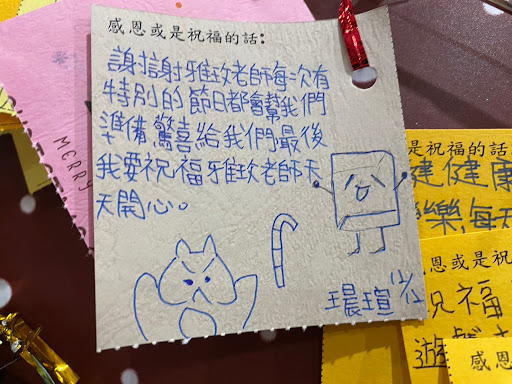 感恩或是祝福的話:
謝謝雅玟老師每次有
特別的節日都會幫我們
準備驚喜給我們最後
我要祝福雅玟老師天
天開心。
王晨瑄
MERRY
是祝福的話:
建健康
樂,每天
恩或是祝
祝福
遊戲
感恩